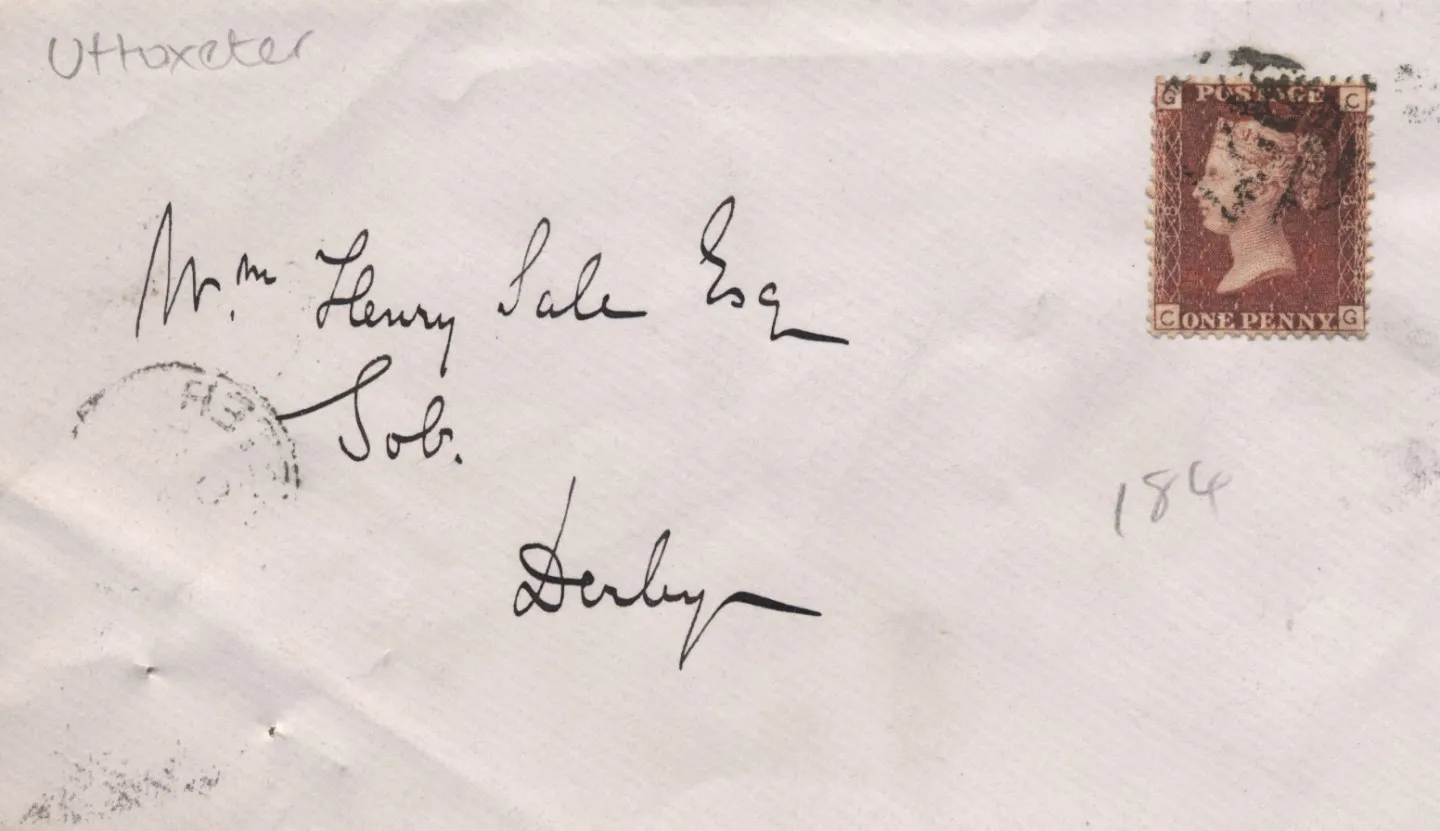 Uttoxeter
G POSTAGE C
Wm. Henry Sale Esq
Sob.
Derby
C ONE PENNY G
184